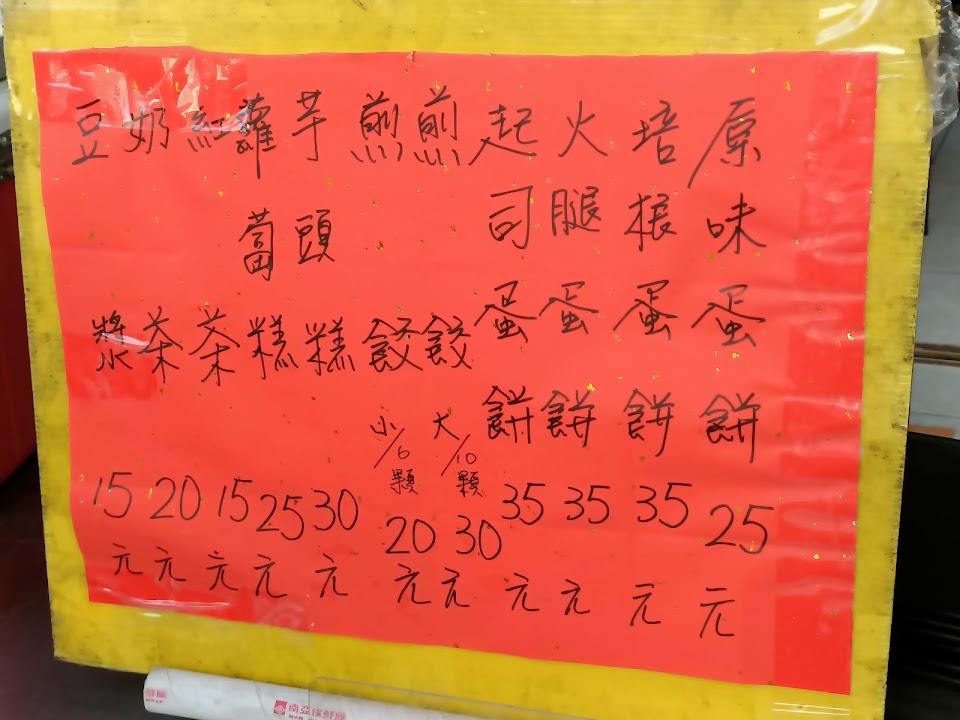 原味蛋餅25元
培根蛋餅35元
火腿蛋餅35元
起司蛋餅35元
煎餃大/10顆30元
煎餃小/6顆20元
芋頭糕30元
蘿蔔糕25元
紅茶15元
奶茶20元
豆漿15元
南亞保鮮膜